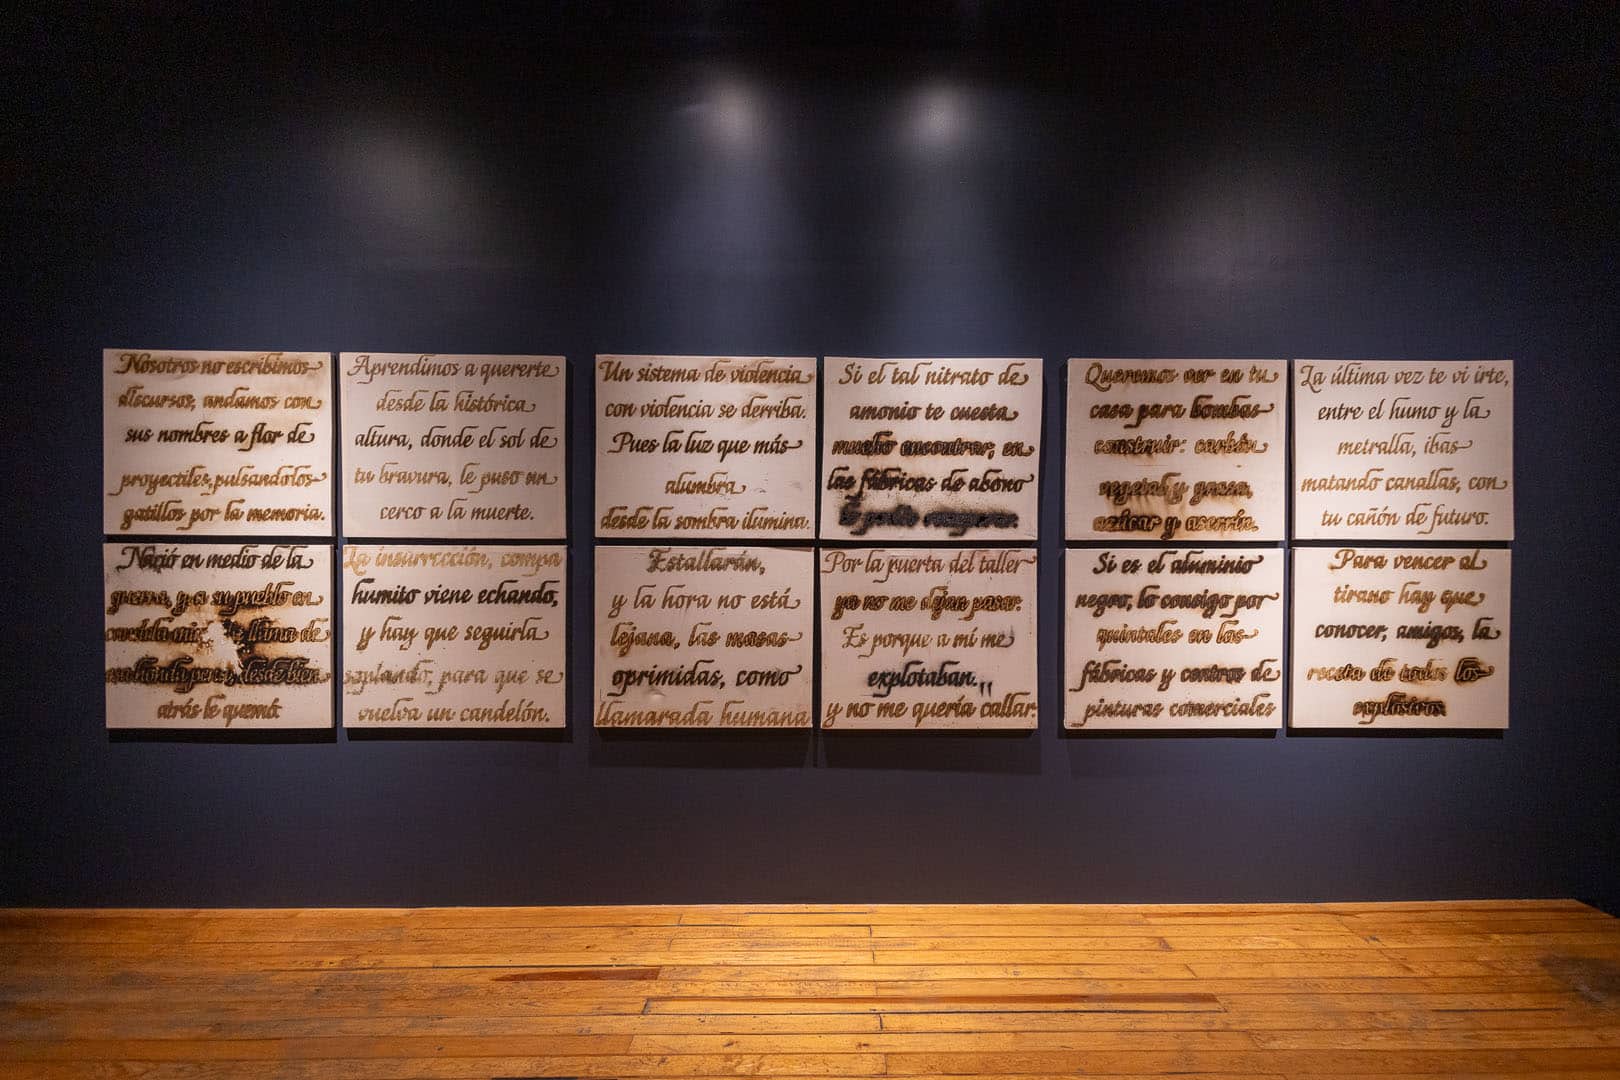 Nosotros no escribimos
discursos, andamos con
sus nombres a flor de
proyectiles, pulsandolos
gatillos por la memoria.
Aprendimos a quererte
desde la histórica
altura, donde el sol de
tu bravura, le puso un
cerco a la muerte.
Nació en medio de la
guerra, y a su pueblo en
llama de
desde bien
atrás le quemó
La insurrección, compa
humito viene echando,
y hay que seguirla
soplando, para que se
vuelva un candelón.
Un sistema de violencia
con violencia se derriba.
Pues la luz que más
alumbra
desde la sombra ilumina.
Si el tal nitrato de
amonio te cuesta
mucho encontrar, en
las fábricas de abono
lo podés
Estallarán,
y la hora no está
lejana, las masas
oprimidas, como
llamarada humana
Por la puerta del taller
ya no me dejan pasar.
Es porque a mí me
explotaban...
y no me quería callar.
Queremos ver en tu
casa para bombas
construir: carbón
vegetal y gasa,
azúcar y aserrín.
La última vez te vi irte,
entre el humo y la
metralla, ibas
matando canallas, con
tu cañón de futuro.
Si es el aluminio
negro, lo consigo por
quintales en las
fábricas y centros de
pinturas comerciales
Para vencer al
tirano hay que
conocer, amigos, la
receta de todos los
explosivos.